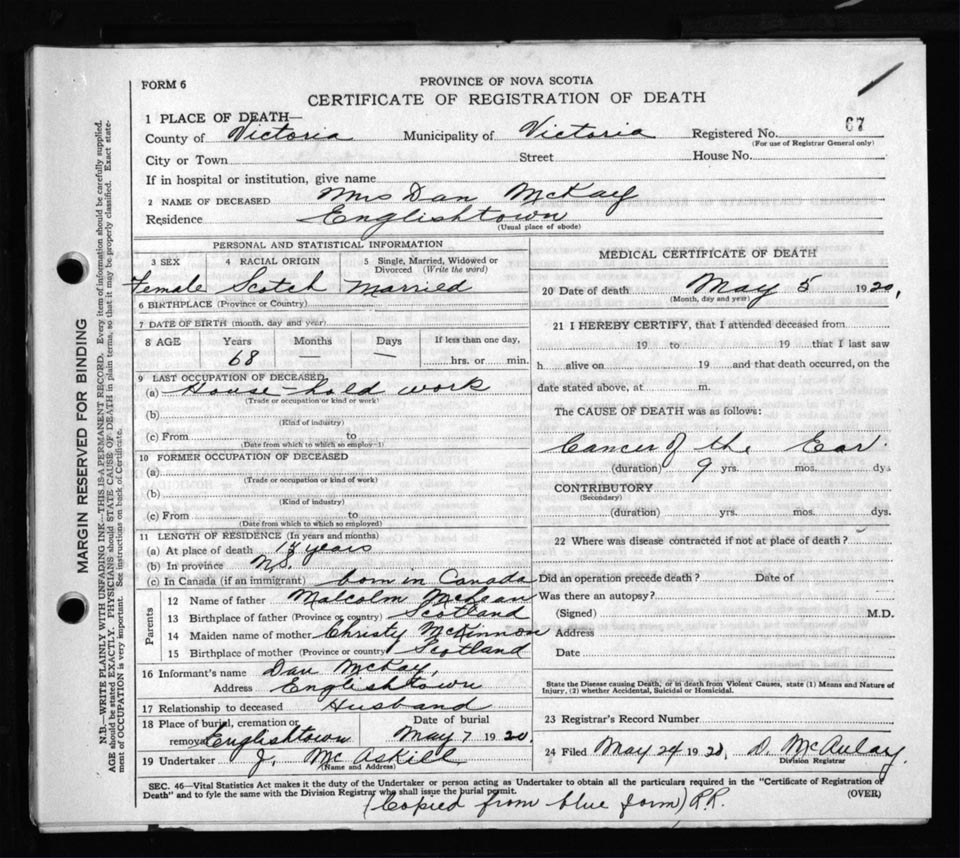 FORM 6
PROVINCE OF NOVA SCOTIA
CERTIFICATE OF REGISTRATION OF DEATH
1 PLACE OF DEATH—
County of Victoria Municipality of Victoria Registered No. 67
(For use of Registrar General only)
City or Town Street House No.
If in hospital or institution, give name
2 NAME OF DECEASED Mrs Dan McKay
Residence Englishtown
(Usual place of abode)
PERSONAL AND STATISTICAL INFORMATION
3 SEX 4 RACIAL ORIGIN 5 Single, Married, Widowed or Divorced (Write the word)
Female Scotch Married
6 BIRTHPLACE (Province or Country)
7 DATE OF BIRTH (month, day and year)
8 AGE Years Months Days If less than one day,
68 — — hrs. or min.
9 LAST OCCUPATION OF DECEASED
(a) House-hold work
(Trade or occupation or kind or work)
(b)
(Kind of industry)
(c) From to
(Date from which to which so employ
10 FORMER OCCUPATION OF DECEASED
(a)
(Trade or occupation or kind of work)
(b)
(Kind of industry)
(c) From to
(Date from which to which so employed)
11 LENGTH OF RESIDENCE (In years and months)
(a) At place of death years
(b) In province N.S.
(c) In Canada (if an immigrant) born in Canada
Parents
12 Name of father Malcolm
13 Birthplace of father (Province or country) Scotland
14 Maiden name of mother Christy McKinnon
15 Birthplace of mother (Province or country) Scotland
16 Informant's name Dan McKay,
Address Englishtown
17 Relationship to deceased Husband
18 Place of burial, cremation or removal Englishtown Date of burial May 7 1920.
19 Undertaker J. McAskill
(Name and Address)
MEDICAL CERTIFICATE OF DEATH
20 Date of death May 5 1920,
(Month, day and year)
21 I HEREBY CERTIFY, that I attended deceased from
19 to 19 that I last saw
h alive on 19 and that death occurred, on the
date stated above, at m.
The CAUSE OF DEATH was as follows:
Cancer of the Ear.
(duration) 9 yrs. mos. dys
CONTRIBUTORY
(Secondary)
(duration) yrs. mos. dys.
22 Where was disease contracted if not at place of death?
Did an operation precede death? Date of
Was there an autopsy?
(Signed) M.D.
Address
Date
State the Disease causing Death, or in death from Violent Causes, state (1) Means and Nature of
Injury, (2) whether Accidental, Suicidal or Homicidal.
23 Registrar's Record Number
24 Filed May 24 1920, D. McAulay.
Division Registrar
SEC. 46—Vital Statistics Act makes it the duty of the Undertaker or person acting as Undertaker to obtain all the particulars required in the "Certificate of Registration of
Death" and to fyle the same with the Division Registrar who shall issue the burial permit. (OVER)
(Copied from blue form) R.R.
MARGIN RESERVED FOR BINDING
N.B.—WRITE PLAINLY WITH UNFADING INK—THIS IS A PERMANENT RECORD. Every item of information should be carefully supplied.
AGE should be stated EXACTLY. PHYSICIANS should STATE CAUSE OF DEATH in plain terms, so that it may be properly classified. Exact state-
ment of OCCUPATION is very important. See instructions on back of Certificate.